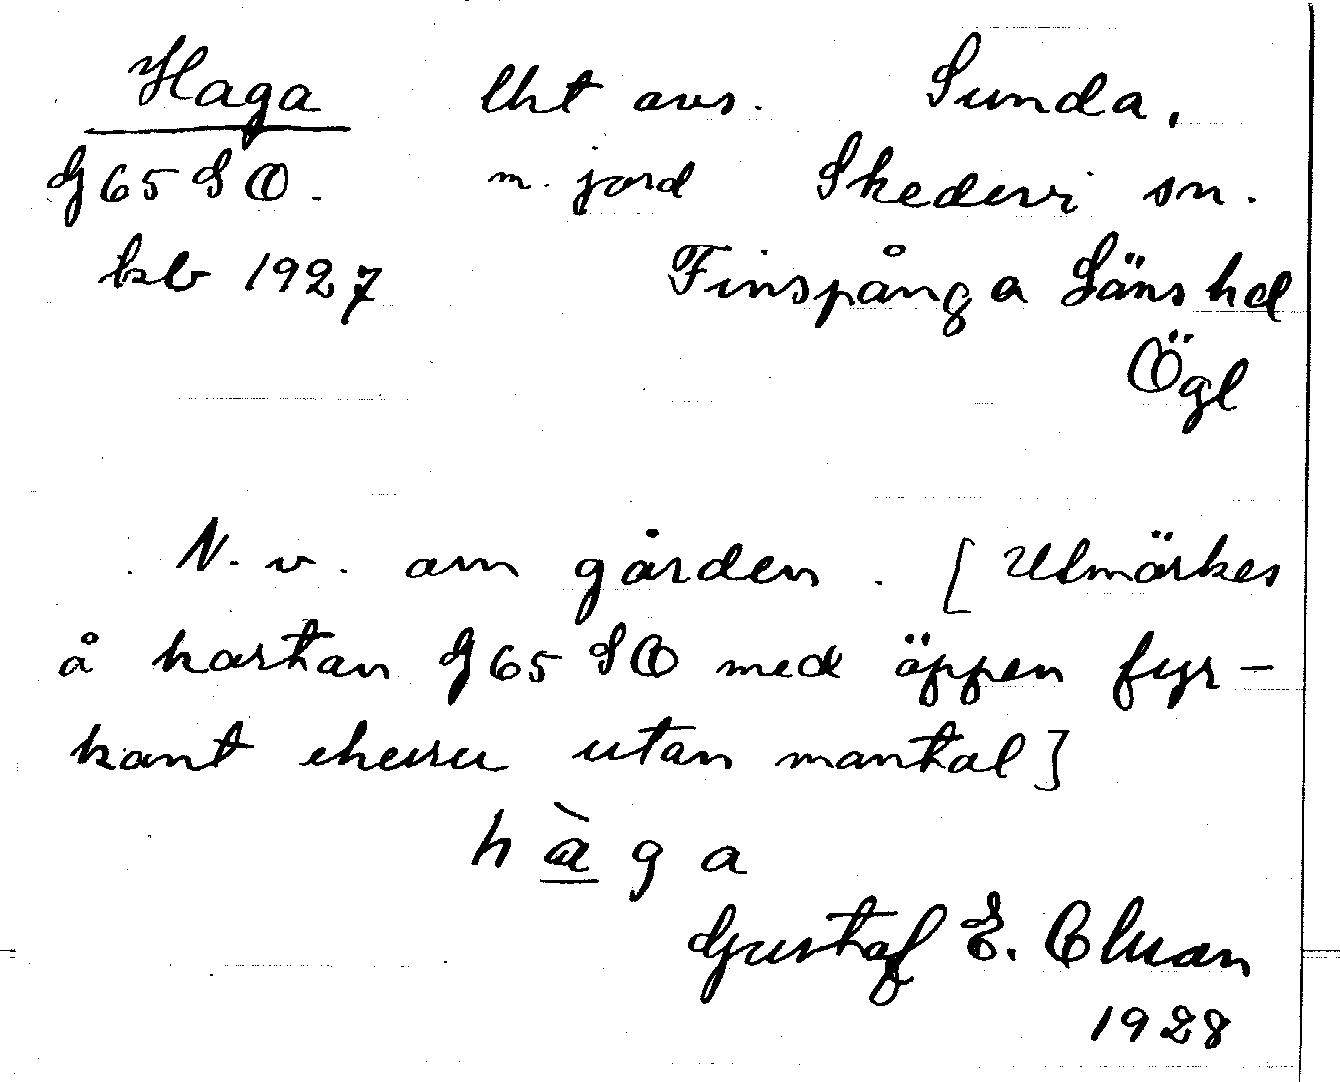 Haga lht avs. Sunda,
G 65 SO. m. jord Skedevi sn.
kb 1927 Finspånga Läns hd
Ögl
N. v. om gården. [Utmärkes
å kartan G 65 SO med öppen fyr-
kant ehuru utan mantal]
h à g a
Gustaf E.
1928